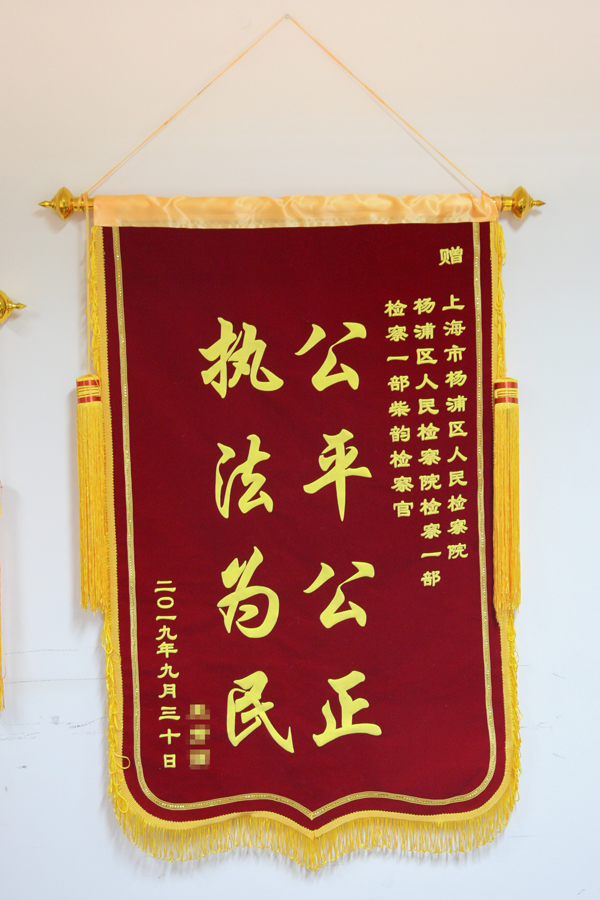 赠
上海市杨浦区人民检察院
杨浦区人民检察院检察一部
检察一部柴韵检察官
公平公正
执法为民
二〇一九年九月三十日